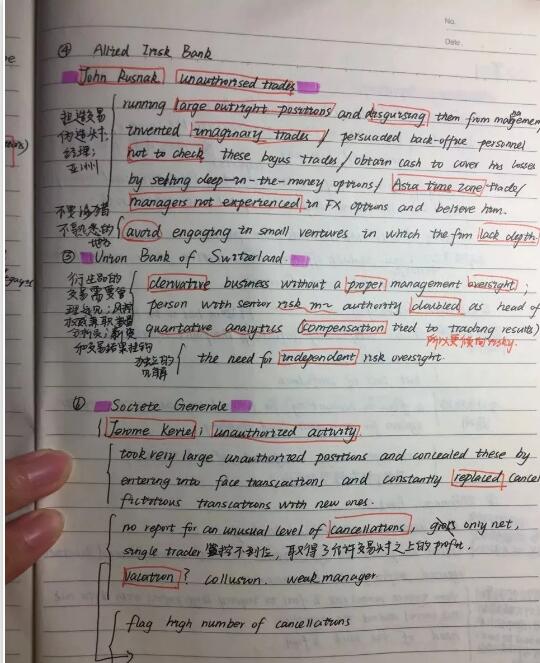 No.
Date
④ Allied Irish Bank
John Rusnak unauthorised trades
running large outright positions and disguising them from management
invented imaginary trades / persuaded back-office personnel
not to check these bogus trades / obtain cash to cover his losses
by selling deep-in-the-money options / Asia time zone trade/
managers not experienced in FX options and believe him.
捏造交易
伪造头寸
经理:
亚洲
avoid engaging in small ventures in which the firm lack depth
不要涉猎
不熟悉的
⑤ Union Bank of Switzerland.
derivative business without a proper management oversight;
person with senior risk m~ authority doubled as head of
quantative analytics (compensation tied to trading results)
所以更倾向risky.
衍生品的
交易需要管
和交易结果挂钩
the need for independent risk oversight.
独立的
⑥ Societe Generale
Jerome Kerviel; unauthorized activity
took very large unauthorized positions and concealed these by
entering into face transactions and constantly replaced cancel
fictitious transcations with new ones.
no report for an unusual level of cancellations, gross only net,
single trader 监控不到位, 取得了允许交易头寸之上的profit.
vacation? collusion. weak manager
flag high number of cancellations